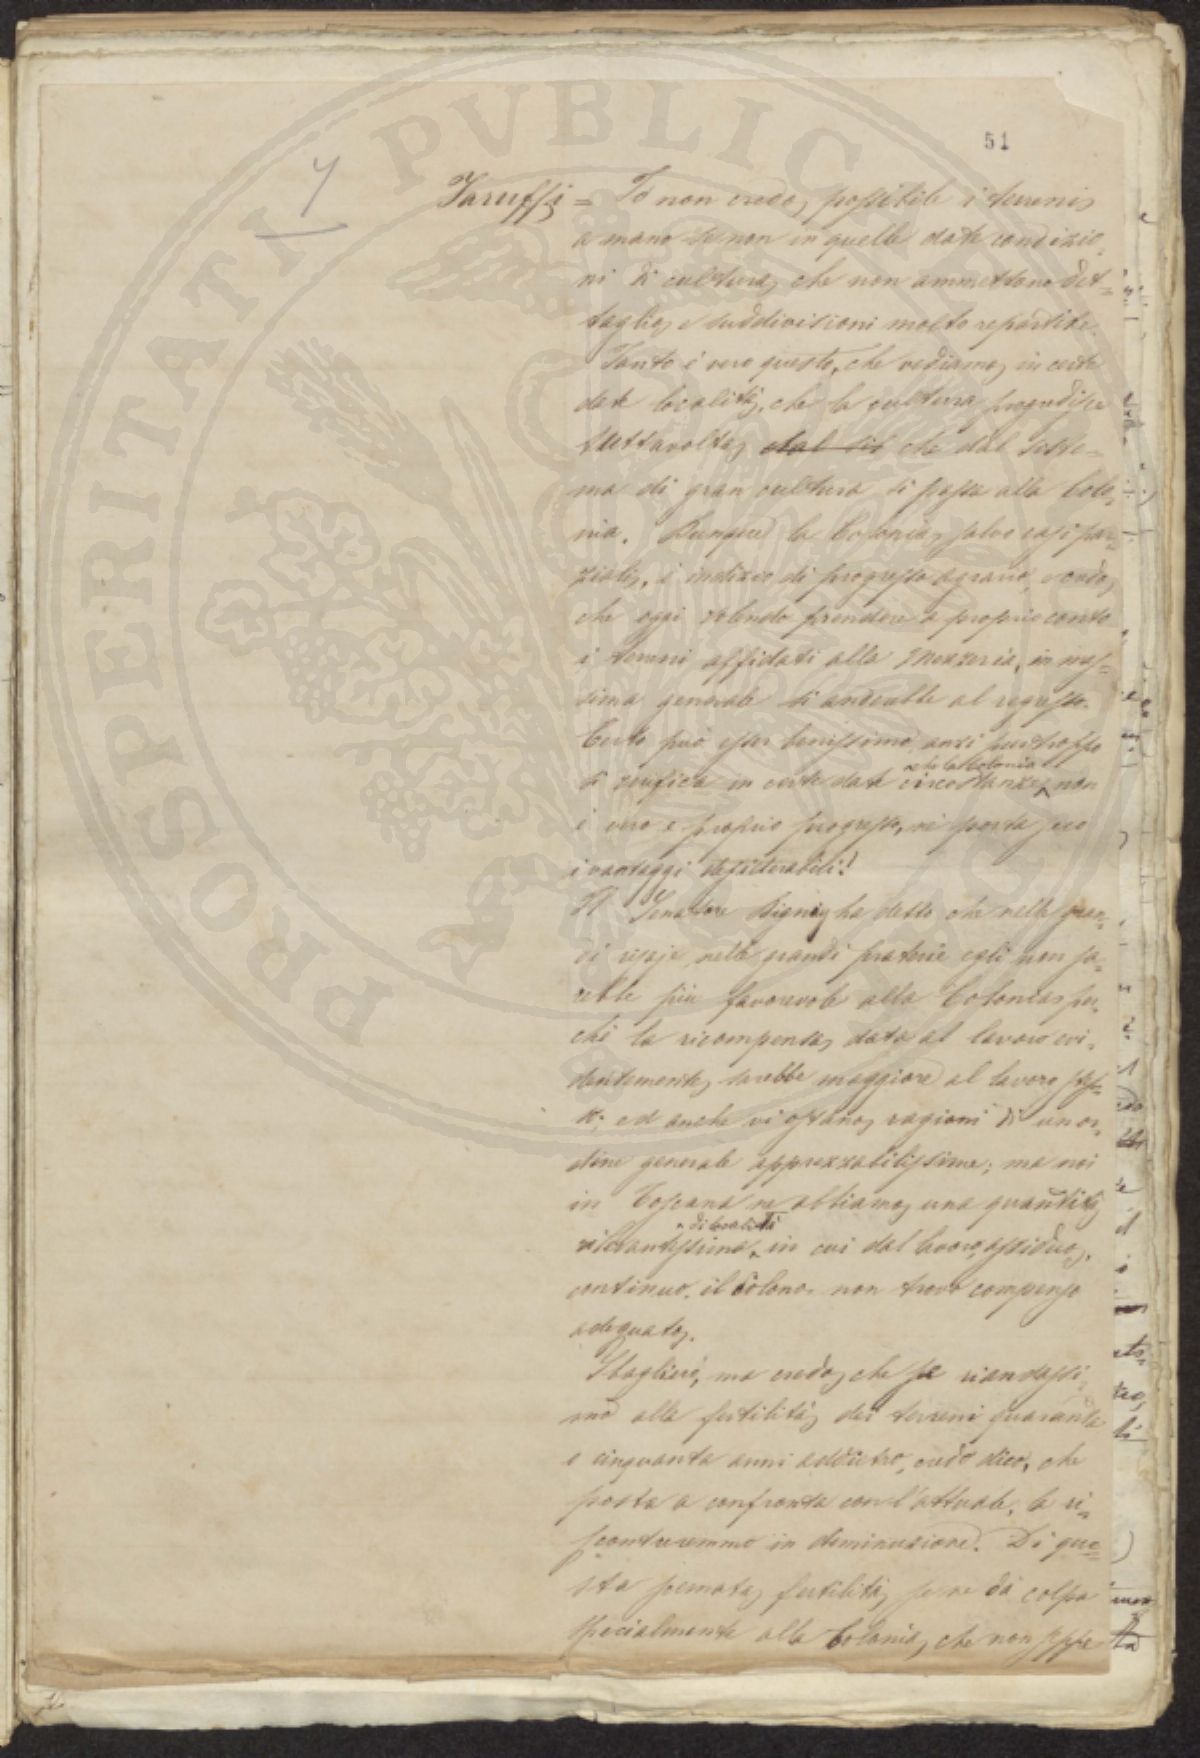 51
Y
PROSPERITATI PUBLICAE
Taruffi = Io non credo possibile i terreni
a mano se non in quelle date condizio-
ni di cultura, che non ammettono det-
taglio e suddivisioni molto repartite.
Tanto è vero questo, che vediamo in certe
date località, che la cultura progredisce
tuttavolta dal sis che dal siste-
ma di gran cultura si passa alla Colo-
nia. Dunque la Colonia, salvo casi par-
ziali, è indizio di progresso agrario, e credo
che oggi volendo prendere a proprio conto
i terreni affidati alla Mezzeria, in mas-
sima generale si andrebbe al regresso.
Certo può esser benissimo, anzi purtroppo
si verifica in certe date circostanze, che la Colonia non
è vero e proprio progresso, nè porta seco
i vantaggi desiderabili!
Il Senatore Digny ha detto che nelle gran-
di risaje nelle grandi praterie egli non sa-
rebbe più favorevole alla Colonia, per-
chè la ricompensa, data al lavoro evi-
dentemente, sarebbe maggiore al lavoro stes-
so; ed anche vi ostano ragioni di un or-
dine generale apprezzabilissime; ma noi
in Toscana ne abbiamo una quantità
rilevantissima di località in cui dal lavoro, assiduo,
continuo, il Colono non trova compenso
adeguato.
Sbaglierò, ma credo, che se riandassi-
mo alla fertilità dei terreni quaranta
e cinquanta anni addietro, credo dico, che
posta a confronto con l'attuale, la ri-
scontreremmo in diminuzione. Di que-
sta scemata fertilità, se ne dà colpa
specialmente alla Colonia, che non seppe